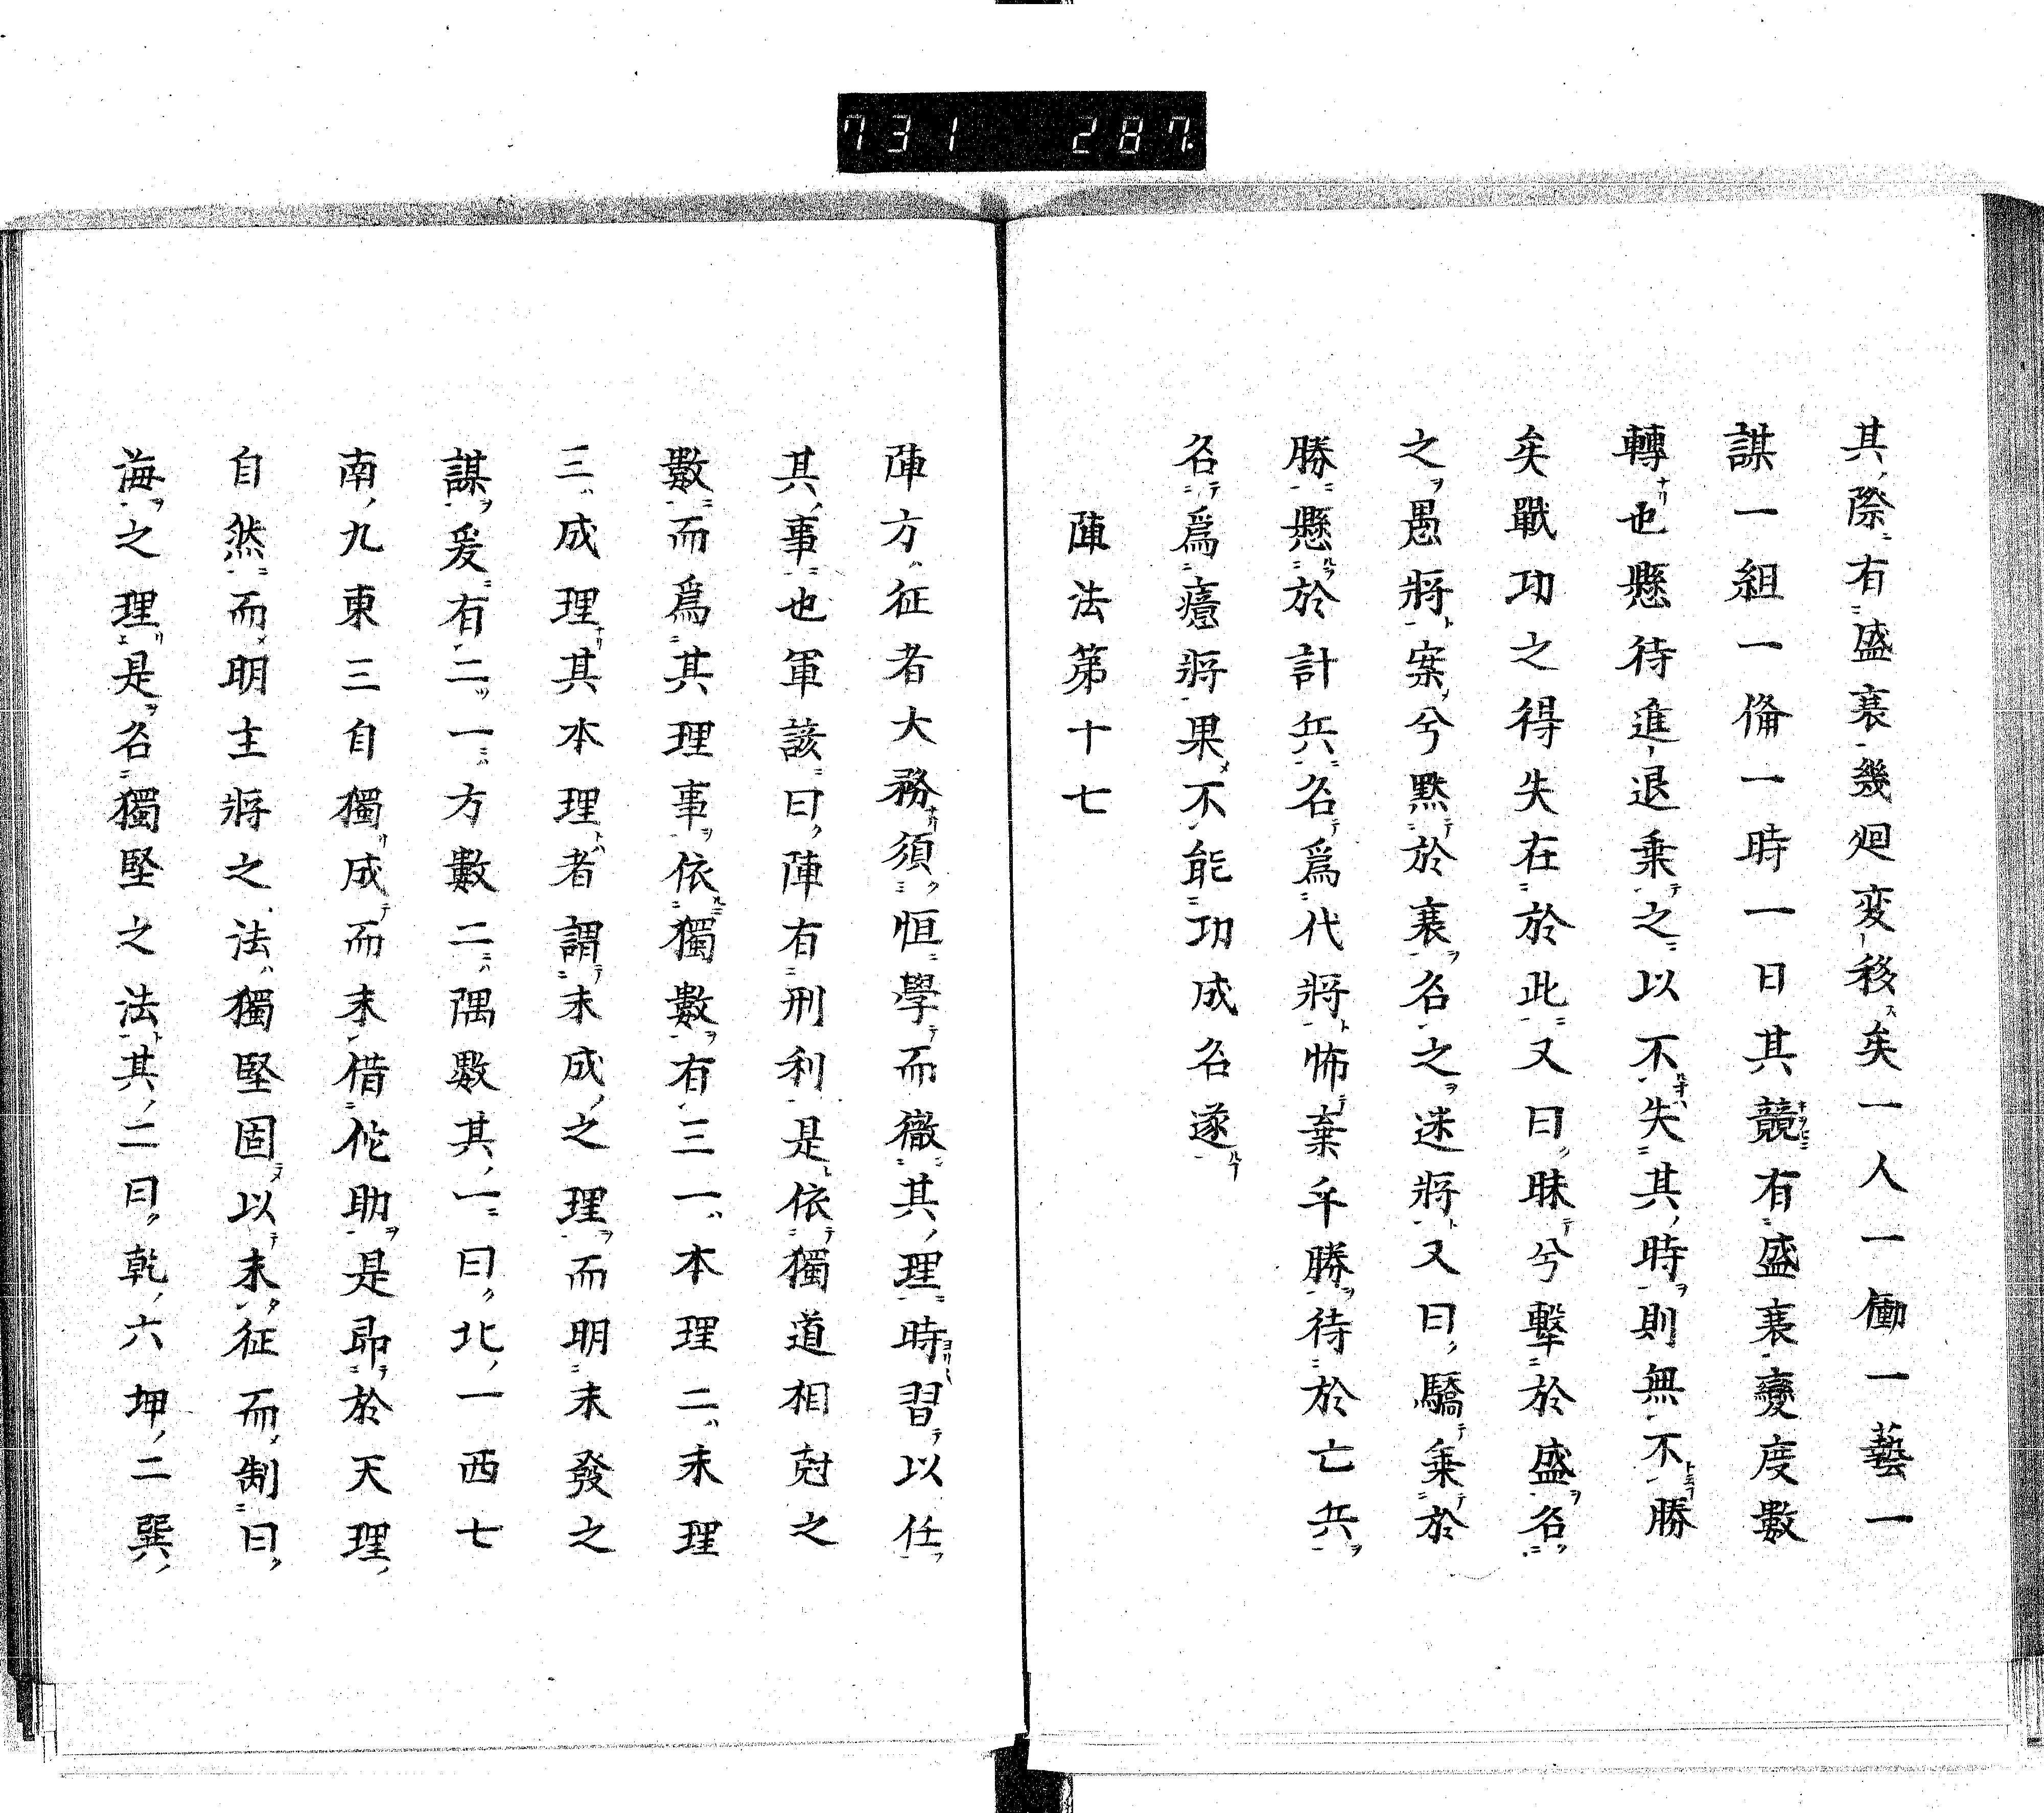 731 287
其際有盛衰幾廻変移矣一人一働一藝一
謀一組一俻一時一日其競有盛衰變度數
轉也懸待進退乗之以不失其時則無不勝
矣戰功之得失在於此又曰昧兮擊於盛名
之愚將案兮黙於衰名之迷將又曰驕乗於
勝懸於計兵名為代將怖棄千勝待於亡兵
名爲將果不能功成名遂
陣法第十七
陣方征者大務須恒學而徹其理時習以任
其事也軍該曰陣有刑利是依獨道相尅之
數而爲其理事依獨數有三一本理二末理
三成理其本理者謂末成之理而明末發之
謀爰有二一方數二隅數其一曰北一西七
南九東三自獨成而未借佗助是昂於天理
自然而明主將之法獨堅固以未征而制曰
海之理是名獨堅之法其二曰乾六坤二巽